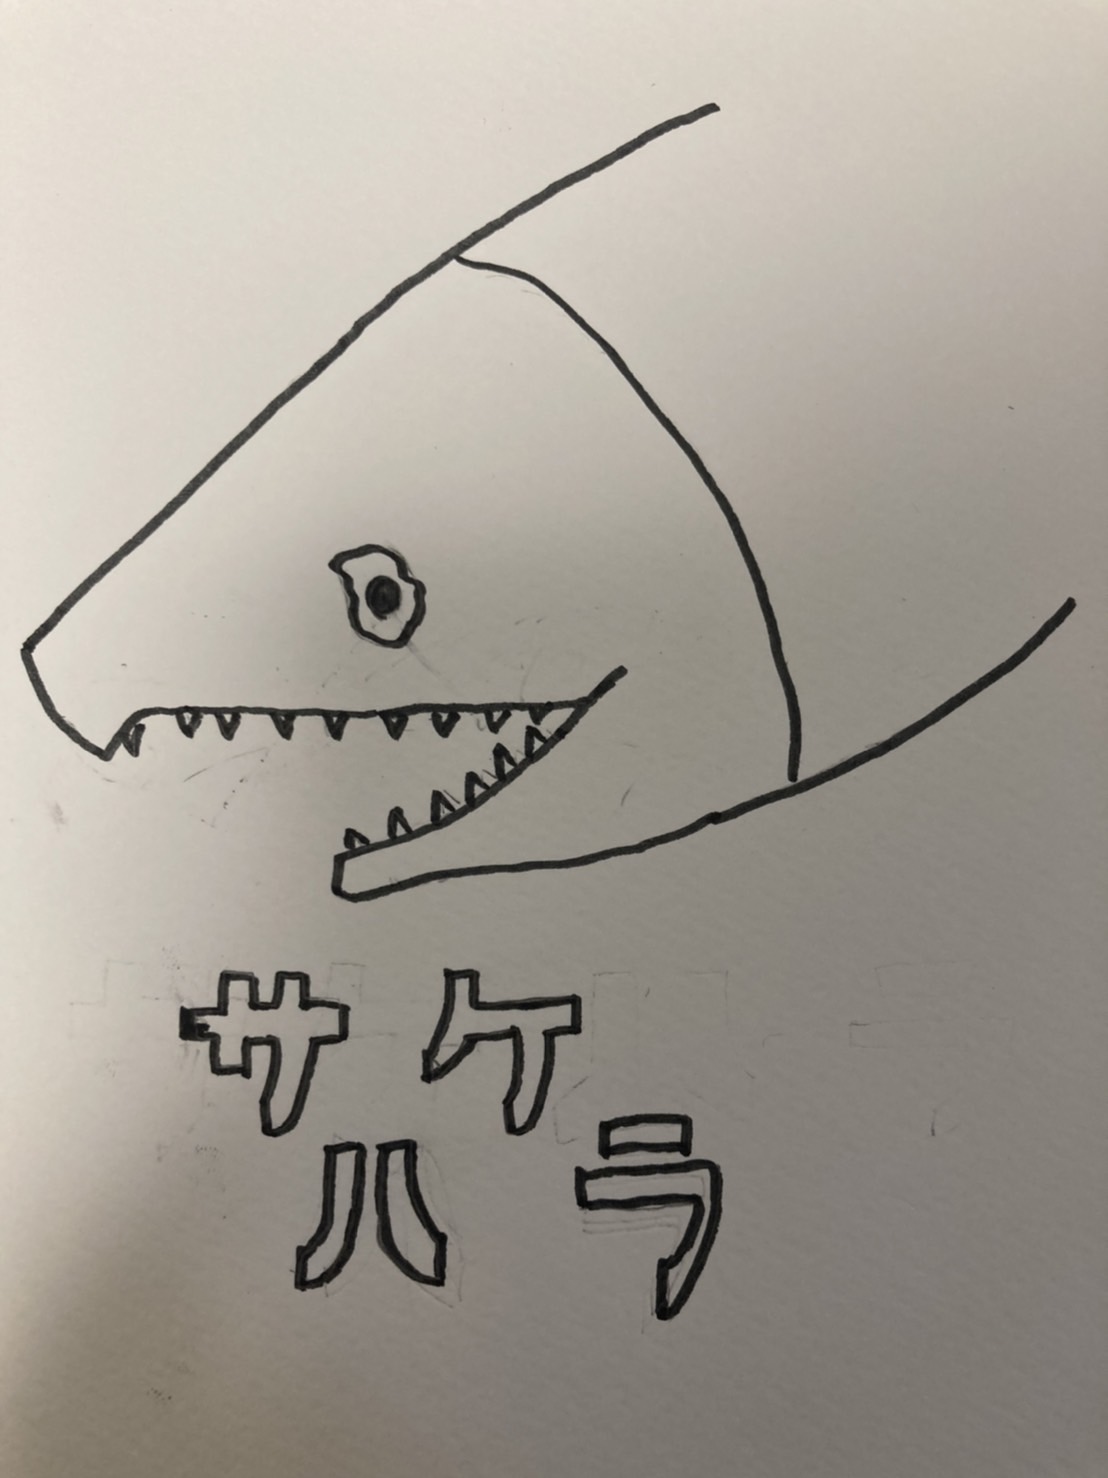 サケ
ハラ